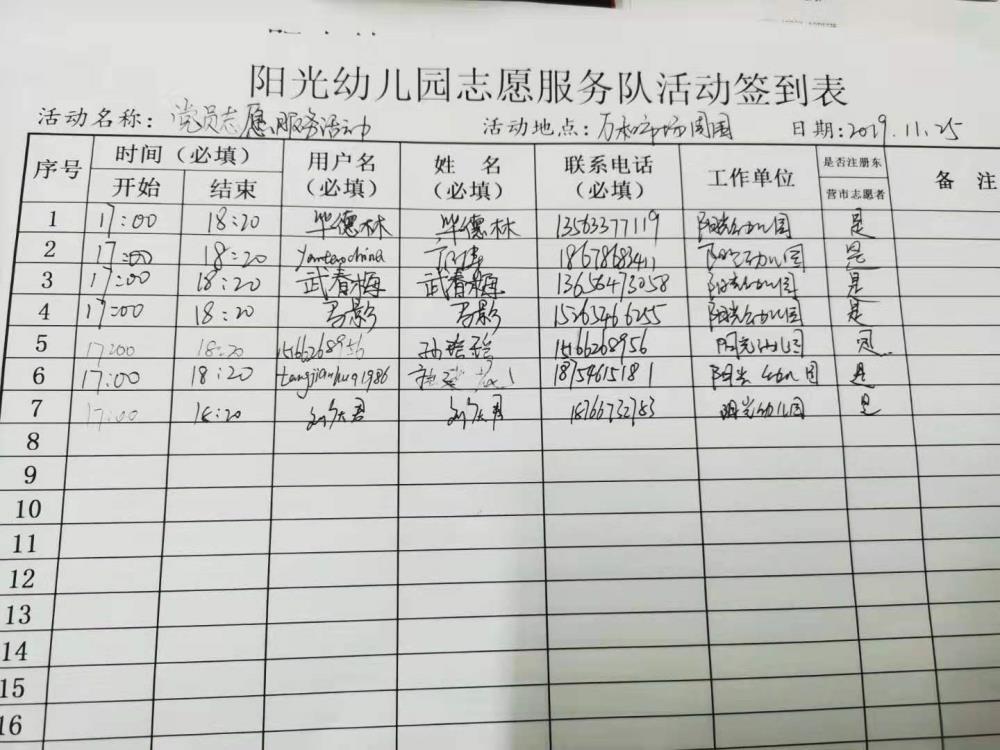 阳光幼儿园志愿服务队活动签到表
活动名称：党员志愿服务活动 活动地点：万和市场周围 日期：2019.11.25
序号 时间（必填） 用户名（必填） 姓名（必填） 联系电话（必填） 工作单位 是否注册东营市志愿者 备注
开始 结束
1 17:00 18:20 毕德林 毕德林 13563377119 阳光幼儿园 是
2 17:00 18:20 18678683411 阳光幼儿园 是
3 17:00 18:20 武春梅 武春梅 13656473058 阳光幼儿园 是
4 17:00 18:20 15263466255 阳光幼儿园 是
5 17:00 18:20 15166268956 孙玲玲 15166268956 阳光幼儿园 是
6 17:00 18:20 tangjianhua1986 18754615181 阳光幼儿园 是
7 17:00 18:20 18766732783 阳光幼儿园 是
8
9
10
11
12
13
14
15
16